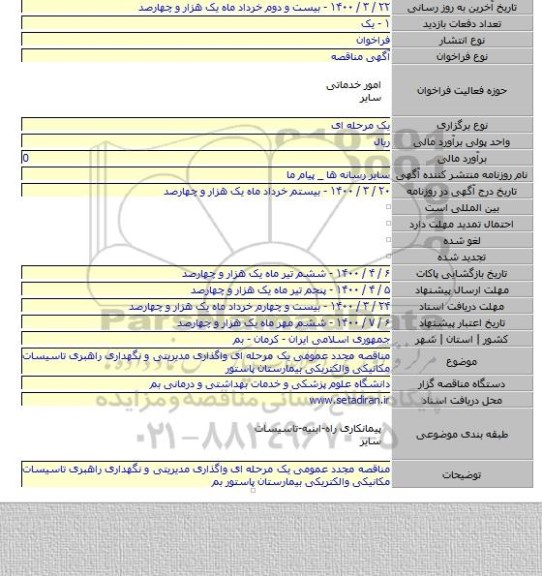 تاریخ آخرین به روز رسانی ۲۲ / ۳ / ۱۴۰۰ - بیست و دوم خرداد ماه یک هزار و چهارصد
تعداد دفعات بازدید ۱ - یک
نوع انتشار فراخوان
نوع فراخوان آگهی مناقصه
حوزه فعالیت فراخوان
امور خدماتی
سایر
نوع برگزاری یک مرحله ای
واحد پولی برآورد مالی ریال
برآورد مالی 0
نام روزنامه منتشر کننده آگهی سایر رسانه ها _ پیام ما
تاریخ درج آگهی در روزنامه ۲۰ / ۳ / ۱۴۰۰ - بیستم خرداد ماه یک هزار و چهارصد
بین المللی است
احتمال تمدید مهلت دارد
لغو شده
تجدید شده
تاریخ بازگشایی پاکات ۶ / ۴ / ۱۴۰۰ - ششم تیر ماه یک هزار و چهارصد
مهلت ارسال پیشنهاد ۵ / ۴ / ۱۴۰۰ - پنجم تیر ماه یک هزار و چهارصد
مهلت دریافت اسناد ۲۴ / ۳ / ۱۴۰۰ - بیست و چهارم خرداد ماه یک هزار و چهارصد
تاریخ اعتبار پیشنهاد ۶ / ۷ / ۱۴۰۰ - ششم مهر ماه یک هزار و چهارصد
کشور | استان | شهر جمهوری اسلامی ایران - کرمان - بم
موضوع مناقصه مجدد عمومی یک مرحله ای واگذاری مدیریتی و نگهداری راهبری تاسیسات
مکانیکی والکتریکی بیمارستان پاستور
دستگاه مناقصه گزار دانشگاه علوم پزشکی و خدمات بهداشتی و درمانی بم
محل دریافت اسناد www.setadiran.ir
طبقه بندی موضوعی
پیمانکاری راه-ابنیه-تاسیسات
سایر
توضیحات مناقصه مجدد عمومی یک مرحله ای واگذاری مدیریتی و نگهداری راهبری تاسیسات
مکانیکی والکتریکی بیمارستان پاستور بم
۰۲۱-۸۸۳۴۹۶۷۰-۵